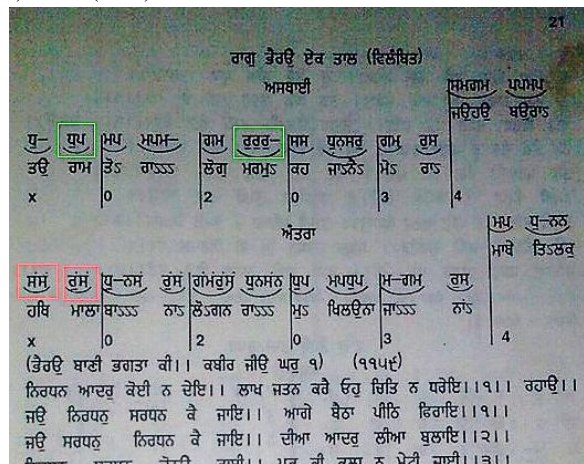 21
ਰਾਗੁ ਭੈਰਉ ਏਕ ਤਾਲ (ਵਿਲੰਬਿਤ)
ਅਸਥਾਈ
ਸਮਗਮ ਪਪਮਪ
ਜਉਹਉ ਬਉਰਾऽ
ਧੁ– ਧੁਪ ਮਪ ਮਪਮ– ਗਮ ਰੁਰੁਰੁ– ਸਸ ਧੁਨਸਰੁ ਗਮ ਰੁਸ
ਤਉ ਰਾਮ ਤੋऽ ਰਾऽऽऽ ਲੋਗੁ ਮਰਮੁऽ ਕਹ ਜਾऽਨੈऽ ਮੋऽ ਰਾऽ
x 0 2 0 3 4
ਅੰਤਰਾ
ਮਪ ਧੁ–ਨਨ
ਮਾਥੇ ਤਿऽਲਕੁ
ਸੰਸੰ ਰੁੰਸੰ ਧੁ–ਨਸੰ ਰੁੰਸੰ ਗੰਮੰਰੁੰਸੰ ਧੁਨਸੰਨ ਧੁਪ ਮਪਧੁਪ ਮ–ਗਮ ਰੁਸ
ਹਥਿ ਮਾਲਾ ਬਾऽऽऽ ਨਾऽ ਲੋऽਗਨ ਰਾऽऽऽ ਮੁऽ ਖਿਲਉਨਾ ਜਾऽऽऽ ਨਾਂऽ
x 0 2 0 3 4
(ਭੈਰਉ ਬਾਣੀ ਭਗਤਾ ਕੀ।। ਕਬੀਰ ਜੀਉ ਘਰੁ ੧) (੧੧੫੯)
ਨਿਰਧਨ ਆਦਰੁ ਕੋਈ ਨ ਦੇਇ।। ਲਾਖ ਜਤਨ ਕਰੈ ਓਹੁ ਚਿਤਿ ਨ ਧਰੇਇ।।੧।। ਰਹਾਉ।।
ਜਉ ਨਿਰਧਨੁ ਸਰਧਨ ਕੈ ਜਾਇ।। ਆਗੇ ਬੈਠਾ ਪੀਠਿ ਫਿਰਾਇ।।੧।।
ਜਉ ਸਰਧਨੁ ਨਿਰਧਨ ਕੈ ਜਾਇ।। ਦੀਆ ਆਦਰੁ ਲੀਆ ਬੁਲਾਇ।।੨।।